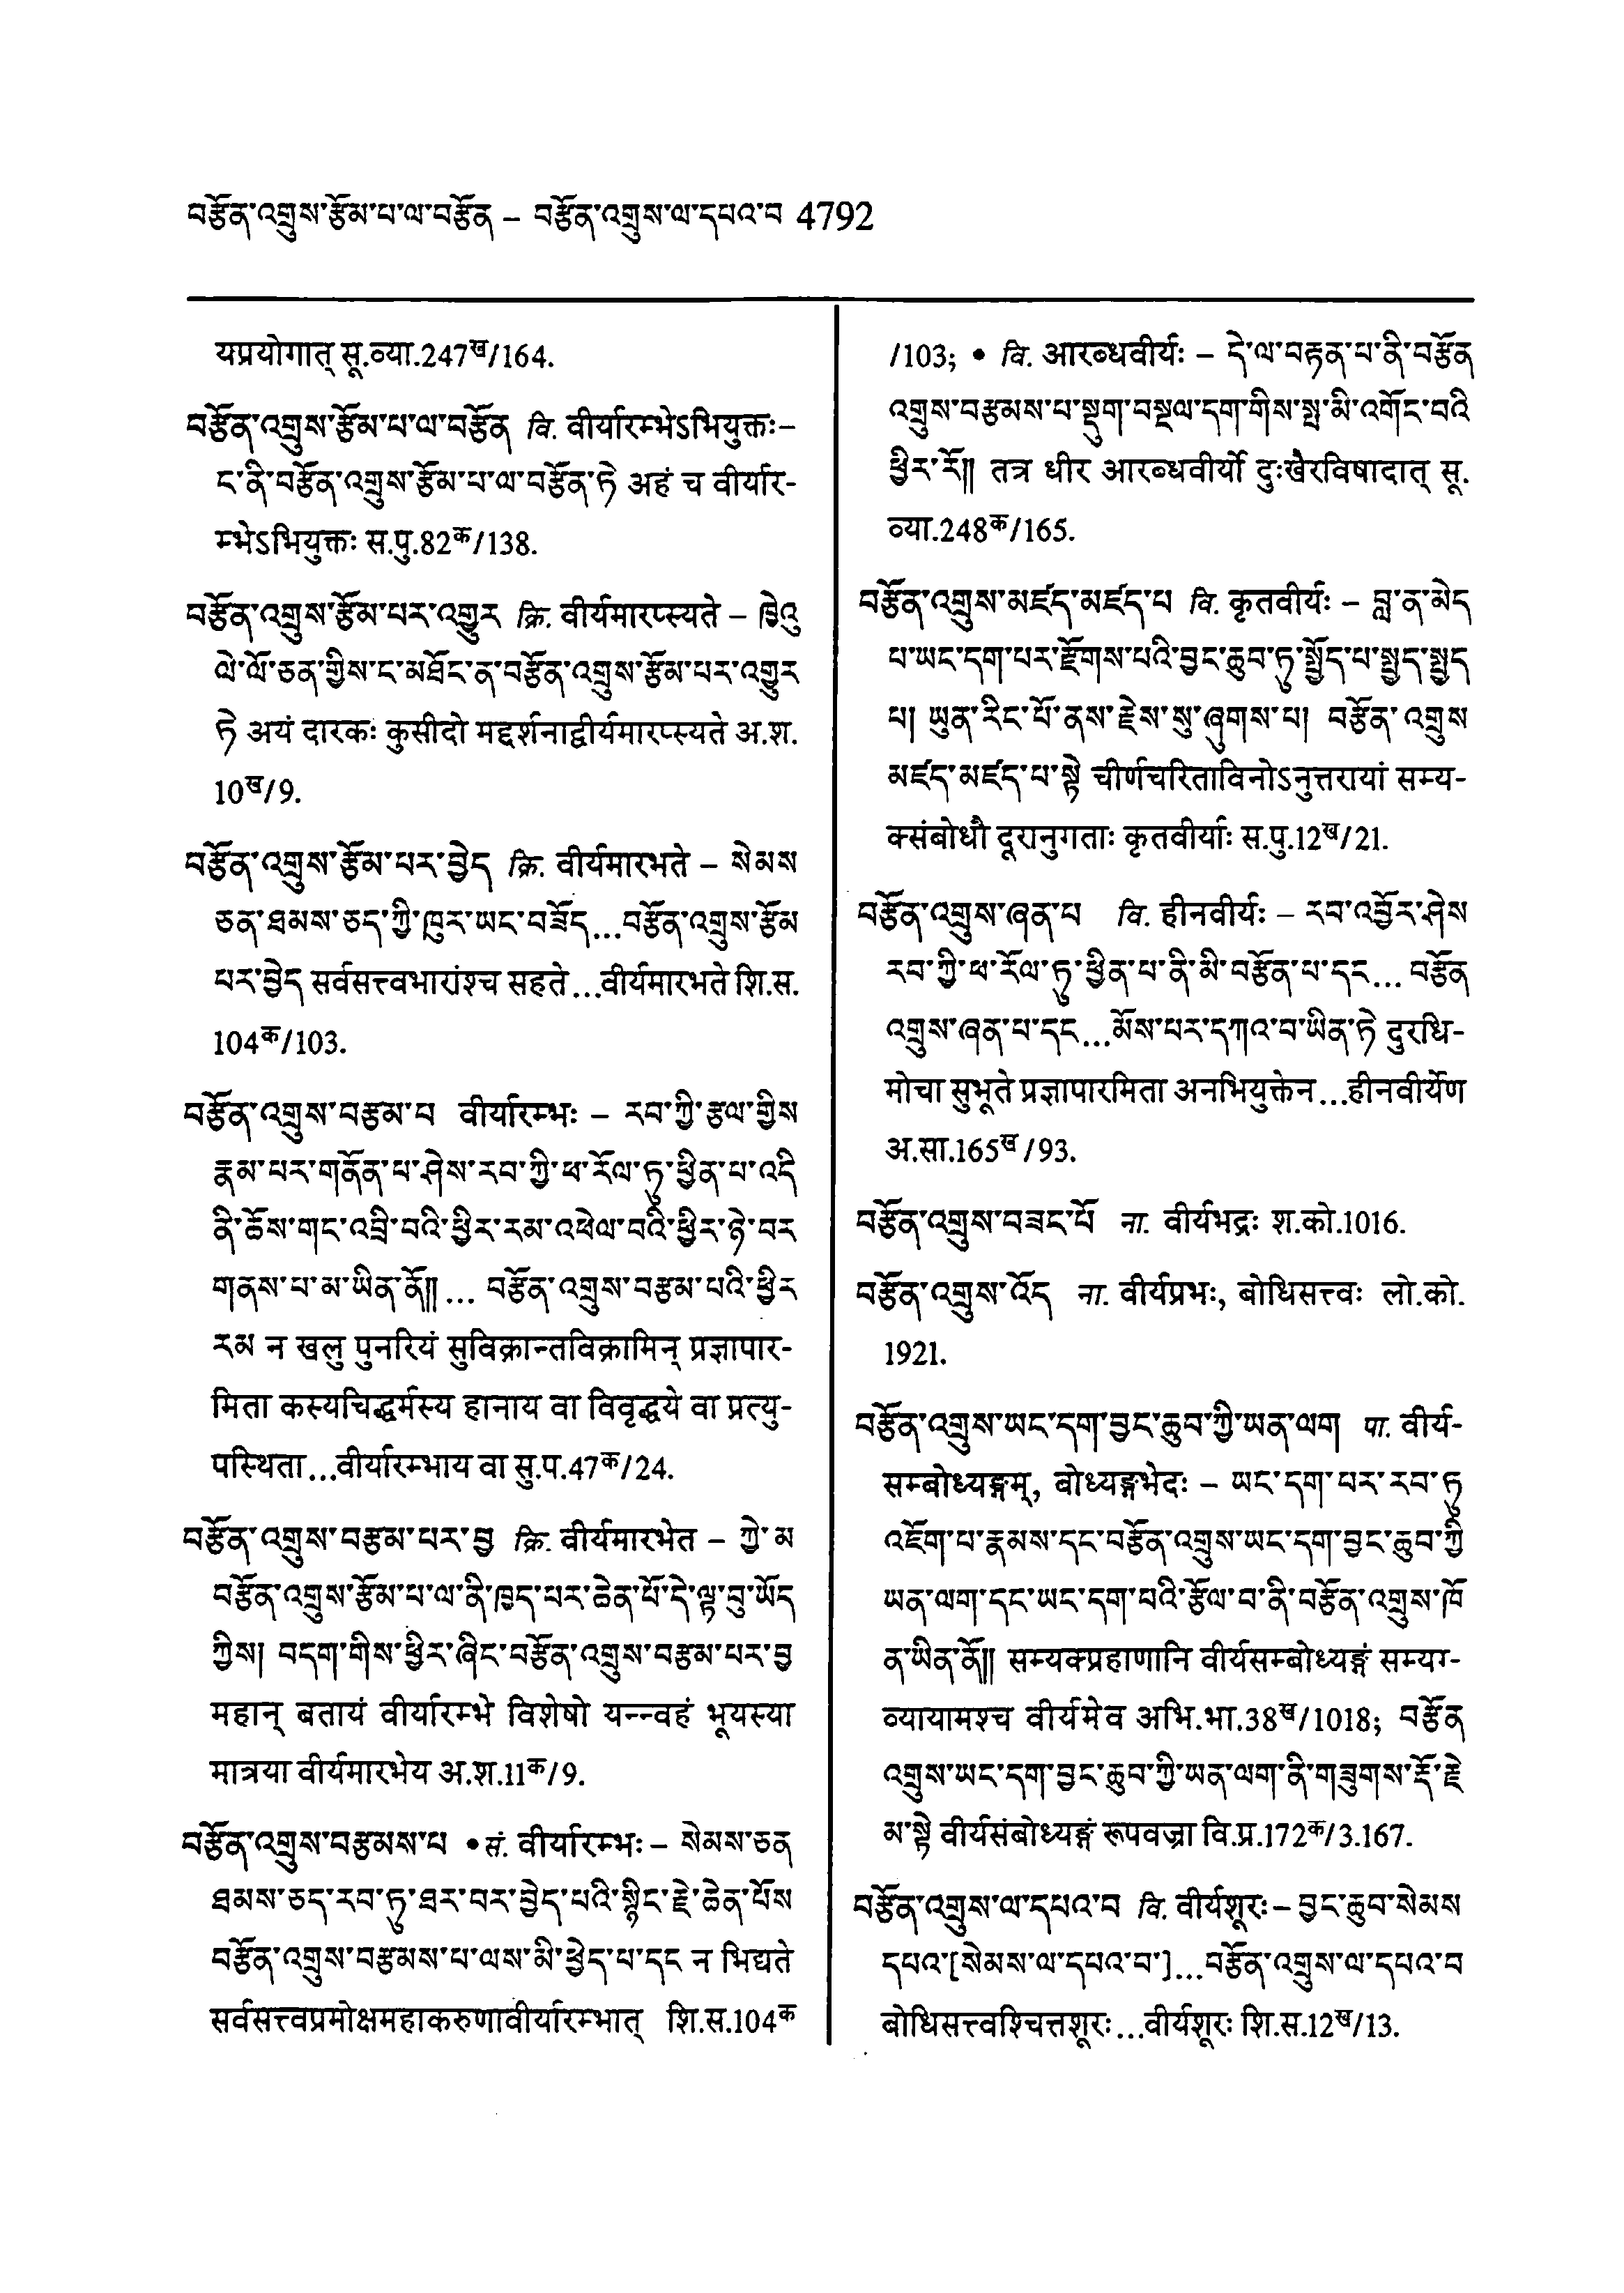 བརྩོན་འགྲུས་རྩོམ་པ་ལ་བརྩོན – བརྩོན་འགྲུས་ལ་དཔའ་བ 4792
यप्रयोगात् सू.व्या.247ख/164.
བརྩོན་འགྲུས་རྩོམ་པ་ལ་བརྩོན वि. वीर्यारम्भेऽभियुक्तः–
ང་ནི་བརྩོན་འགྲུས་རྩོམ་པ་ལ་བརྩོན་ཏེ अहं च वीर्यार-
म्भेऽभियुक्तः स.पु.82क/138.
བརྩོན་འགྲུས་རྩོམ་པར་འགྱུར क्रि. वीर्यमारप्स्यते – ཁྱེའུ
ལེ་ལོ་ཅན་གྱིས་ང་མཐོང་ན་བརྩོན་འགྲུས་རྩོམ་པར་འགྱུར
ཏེ अयं दारकः कुसीदो मद्दर्शनाद्वीर्यमारप्स्यते अ.श.
10ख/9.
བརྩོན་འགྲུས་རྩོམ་པར་བྱེད क्रि. वीर्यमारभते – སེམས
ཅན་ཐམས་ཅད་ཀྱི་ཁུར་ཡང་བཟོད...བརྩོན་འགྲུས་རྩོམ
པར་བྱེད सर्वसत्त्वभारांश्च सहते...वीर्यमारभते शि.स.
104क/103.
བརྩོན་འགྲུས་བརྩམ་པ वीर्यारम्भः – རབ་ཀྱི་རྩལ་གྱིས
རྣམ་པར་གནོན་པ་ཤེས་རབ་ཀྱི་ཕ་རོལ་ཏུ་ཕྱིན་པ་འདི
ནི་ཆོས་གང་འབྲི་བའི་ཕྱིར་རམ་འཕེལ་བའི་ཕྱིར་ཉེ་བར
གནས་པ་མ་ཡིན་ནོ༎... བརྩོན་འགྲུས་བརྩམ་པའི་ཕྱིར
རམ न खलु पुनरियं सुविक्रान्तविक्रामिन् प्रज्ञापार-
मिता कस्यचिद्धर्मस्य हानाय वा विवृद्धये वा प्रत्यु-
पस्थिता...वीर्यारम्भाय वा सु.प.47क/24.
བརྩོན་འགྲུས་བརྩམ་པར་བྱ क्रि. वीर्यमारभेत – ཀྱེ་མ
བརྩོན་འགྲུས་རྩོམ་པ་ལ་ནི་ཁྱད་པར་ཆེན་པོ་དེ་ལྟ་བུ་ཡོད
ཀྱིས། བདག་གིས་ཕྱིར་ཞིང་བརྩོན་འགྲུས་བརྩམ་པར་བྱ
महान् बतायं वीर्यारम्भे विशेषो यन्न्वहं भूयस्या
मात्रया वीर्यमारभेय अ.श.11क/9.
བརྩོན་འགྲུས་བརྩམས་པ • सं. वीर्यारम्भः – སེམས་ཅན
ཐམས་ཅད་རབ་ཏུ་ཐར་བར་བྱེད་པའི་སྙིང་རྗེ་ཆེན་པོས
བརྩོན་འགྲུས་བརྩམས་པ་ལས་མི་ཕྱེད་པ་དང न भिद्यते
सर्वसत्त्वप्रमोक्षमहाकरुणावीर्यारम्भात् शि.स.104क
/103; • वि. आरब्धवीर्यः – དེ་ལ་བརྟན་པ་ནི་བརྩོན
འགྲུས་བརྩམས་པ་སྡུག་བསྔལ་དག་གིས་སྤ་མི་འགོང་བའི
ཕྱིར་རོ༎ तत्र धीर आरब्धवीर्यो दुःखैरविषादात् सू.
व्या.248क/165.
བརྩོན་འགྲུས་མཛད་མཛད་པ वि. कृतवीर्यः – བླ་ན་མེད
པ་ཡང་དག་པར་རྫོགས་པའི་བྱང་ཆུབ་ཏུ་སྤྱོད་པ་སྤྱད་སྤྱད
པ། ཡུན་རིང་པོ་ནས་རྗེས་སུ་ཞུགས་པ། བརྩོན་འགྲུས
མཛད་མཛད་པ་སྟེ चीर्णचरिताविनोऽनुत्तरायां सम्य-
क्संबोधौ दूरानुगताः कृतवीर्याः स.पु.12ख/21.
བརྩོན་འགྲུས་ཞན་པ वि. हीनवीर्यः – རབ་འབྱོར་ཤེས
རབ་ཀྱི་ཕ་རོལ་ཏུ་ཕྱིན་པ་ནི་མི་བརྩོན་པ་དང... བརྩོན
འགྲུས་ཞན་པ་དང...མོས་པར་དཀའ་བ་ཡིན་ཏེ दुरधि-
मोचा सुभूते प्रज्ञापारमिता अनभियुक्तेन...हीनवीर्येण
अ.सा.165ख/93.
བརྩོན་འགྲུས་བཟང་པོ ना. वीर्यभद्रः श.को.1016.
བརྩོན་འགྲུས་འོད ना. वीर्यप्रभः, बोधिसत्त्वः लो.को.
1921.
བརྩོན་འགྲུས་ཡང་དག་བྱང་ཆུབ་ཀྱི་ཡན་ལག पा. वीर्य-
सम्बोध्यङ्गम्, बोध्यङ्गभेदः – ཡང་དག་པར་རབ་ཏུ
འཇོག་པ་རྣམས་དང་བརྩོན་འགྲུས་ཡང་དག་བྱང་ཆུབ་ཀྱི
ཡན་ལག་དང་ཡང་དག་པའི་རྩོལ་བ་ནི་བརྩོན་འགྲུས་ཁོ
ན་ཡིན་ནོ༎ सम्यक्प्रहाणानि वीर्यसम्बोध्यङ्गं सम्यग्-
व्यायामश्च वीर्यमेव अभि.भा.38ख/1018; བརྩོན
འགྲུས་ཡང་དག་བྱང་ཆུབ་ཀྱི་ཡན་ལག་ནི་གཟུགས་རྡོ་རྗེ
མ་སྟེ वीर्यसंबोध्यङ्गं रूपवज्रा वि.प्र.172क/3.167.
བརྩོན་འགྲུས་ལ་དཔའ་བ वि. वीर्यशूरः – བྱང་ཆུབ་སེམས
དཔའ་[སེམས་ལ་དཔའ་བ་]...བརྩོན་འགྲུས་ལ་དཔའ་བ
बोधिसत्त्वश्चित्तशूरः...वीर्यशूरः शि.स.12ख/13.